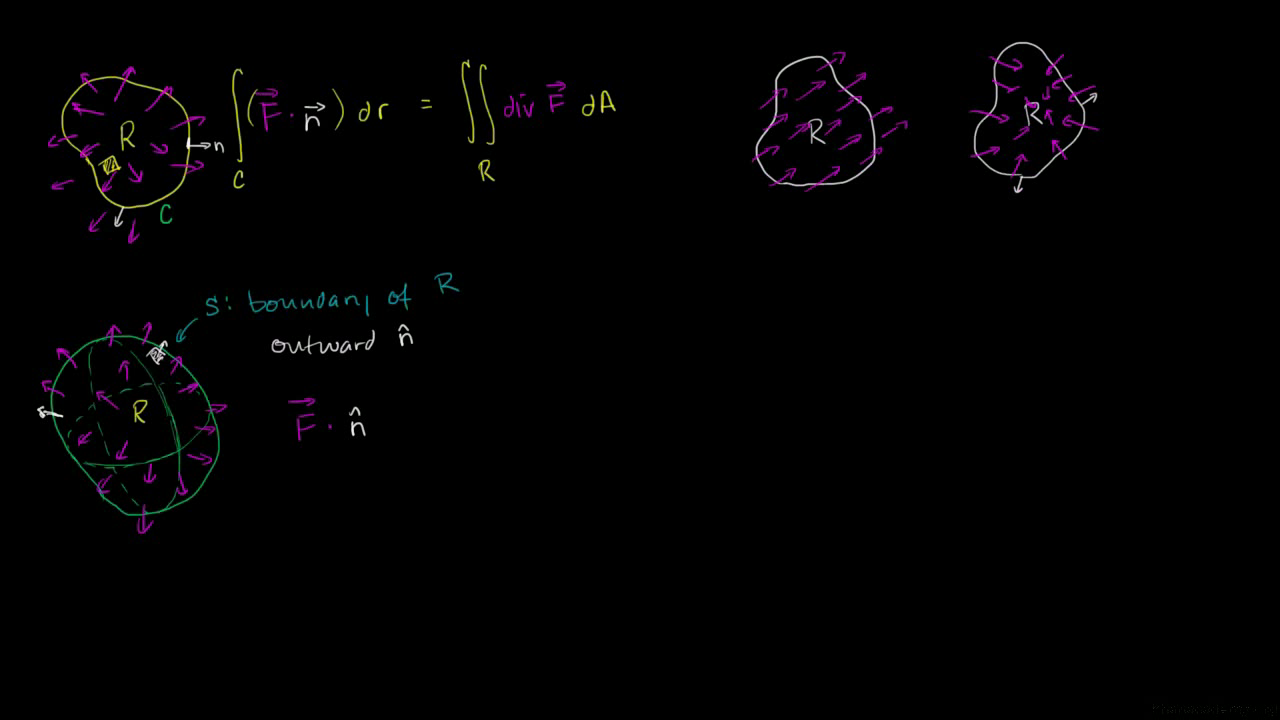 R
n
C
∫_C (F⃗ · n⃗) dr = ∬_R div F⃗ dA
R
R
S: boundary of R
outward n̂
R
F⃗ · n̂